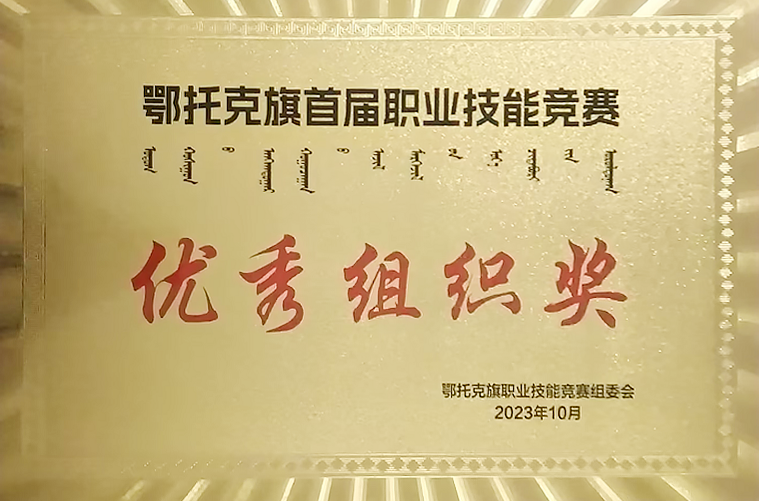 鄂托克旗首届职业技能竞赛
优秀组织奖
鄂托克旗职业技能竞赛组委会
2023年10月